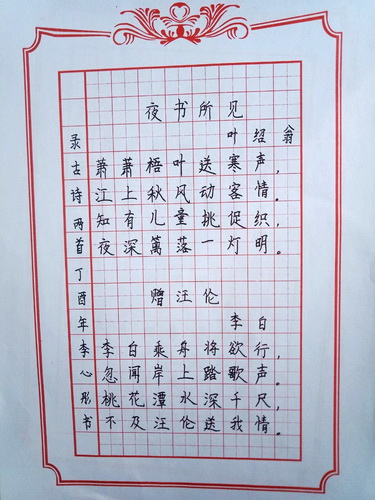 夜书所见
叶绍翁
萧萧梧叶送寒声，
江上秋风动客情。
知有儿童挑促织，
夜深篱落一灯明。
赠汪伦
李白
李白乘舟将欲行，
忽闻岸上踏歌声。
桃花潭水深千尺，
不及汪伦送我情。
录古诗两首丁酉年李心彤书